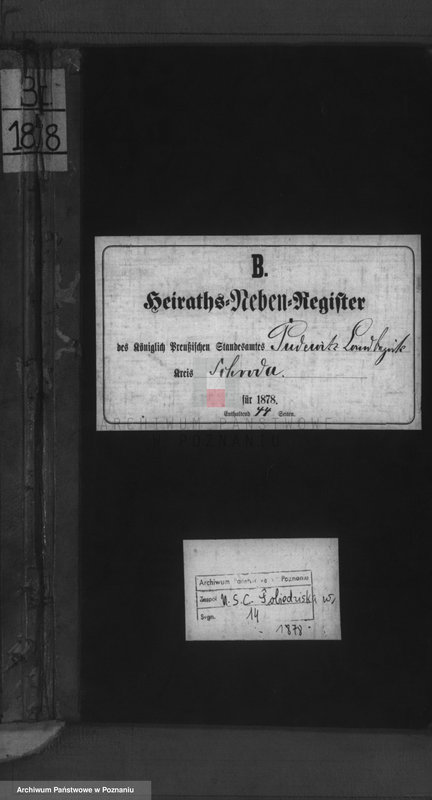 1878
B.
Heiraths-Neben-Register
des Königlich Preußischen Standesamtes Pudewitz Landbezirk
Kreis Schroda.
für 1878.
Enthaltend 44 Seiten.
ARCHIWUM PAŃSTWOWE
W POZNANIU
Archiwum Państwowe w Poznaniu
Zespół U.S.C. Pobiedziska w,
Sygn. 14
1878
Archiwum Państwowe w Poznaniu